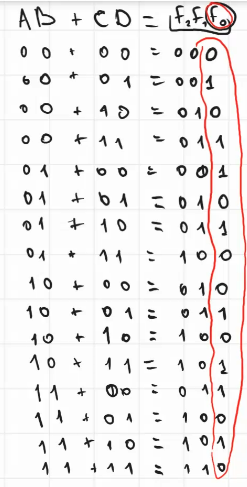 AB + CD = f₂f₁f₀
00 + 00 = 000
00 + 01 = 001
00 + 10 = 010
00 + 11 = 011
01 + 00 = 001
01 + 01 = 010
01 + 10 = 011
01 + 11 = 100
10 + 00 = 010
10 + 01 = 011
10 + 10 = 100
10 + 11 = 101
11 + 00 = 011
11 + 01 = 100
11 + 10 = 101
11 + 11 = 110